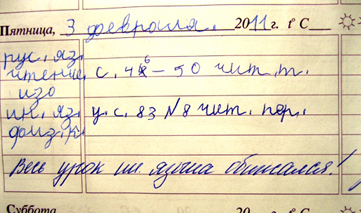 Пятница, 3 февраля 2011 г. t° C
рус. яз.
чтение с. 48-50 чит. т.
изо
ин. яз. у. с. 83 №8 чит. пер.
физ. к.
Весь урок ин. языка обписался!
Суббота 20 г. t° C